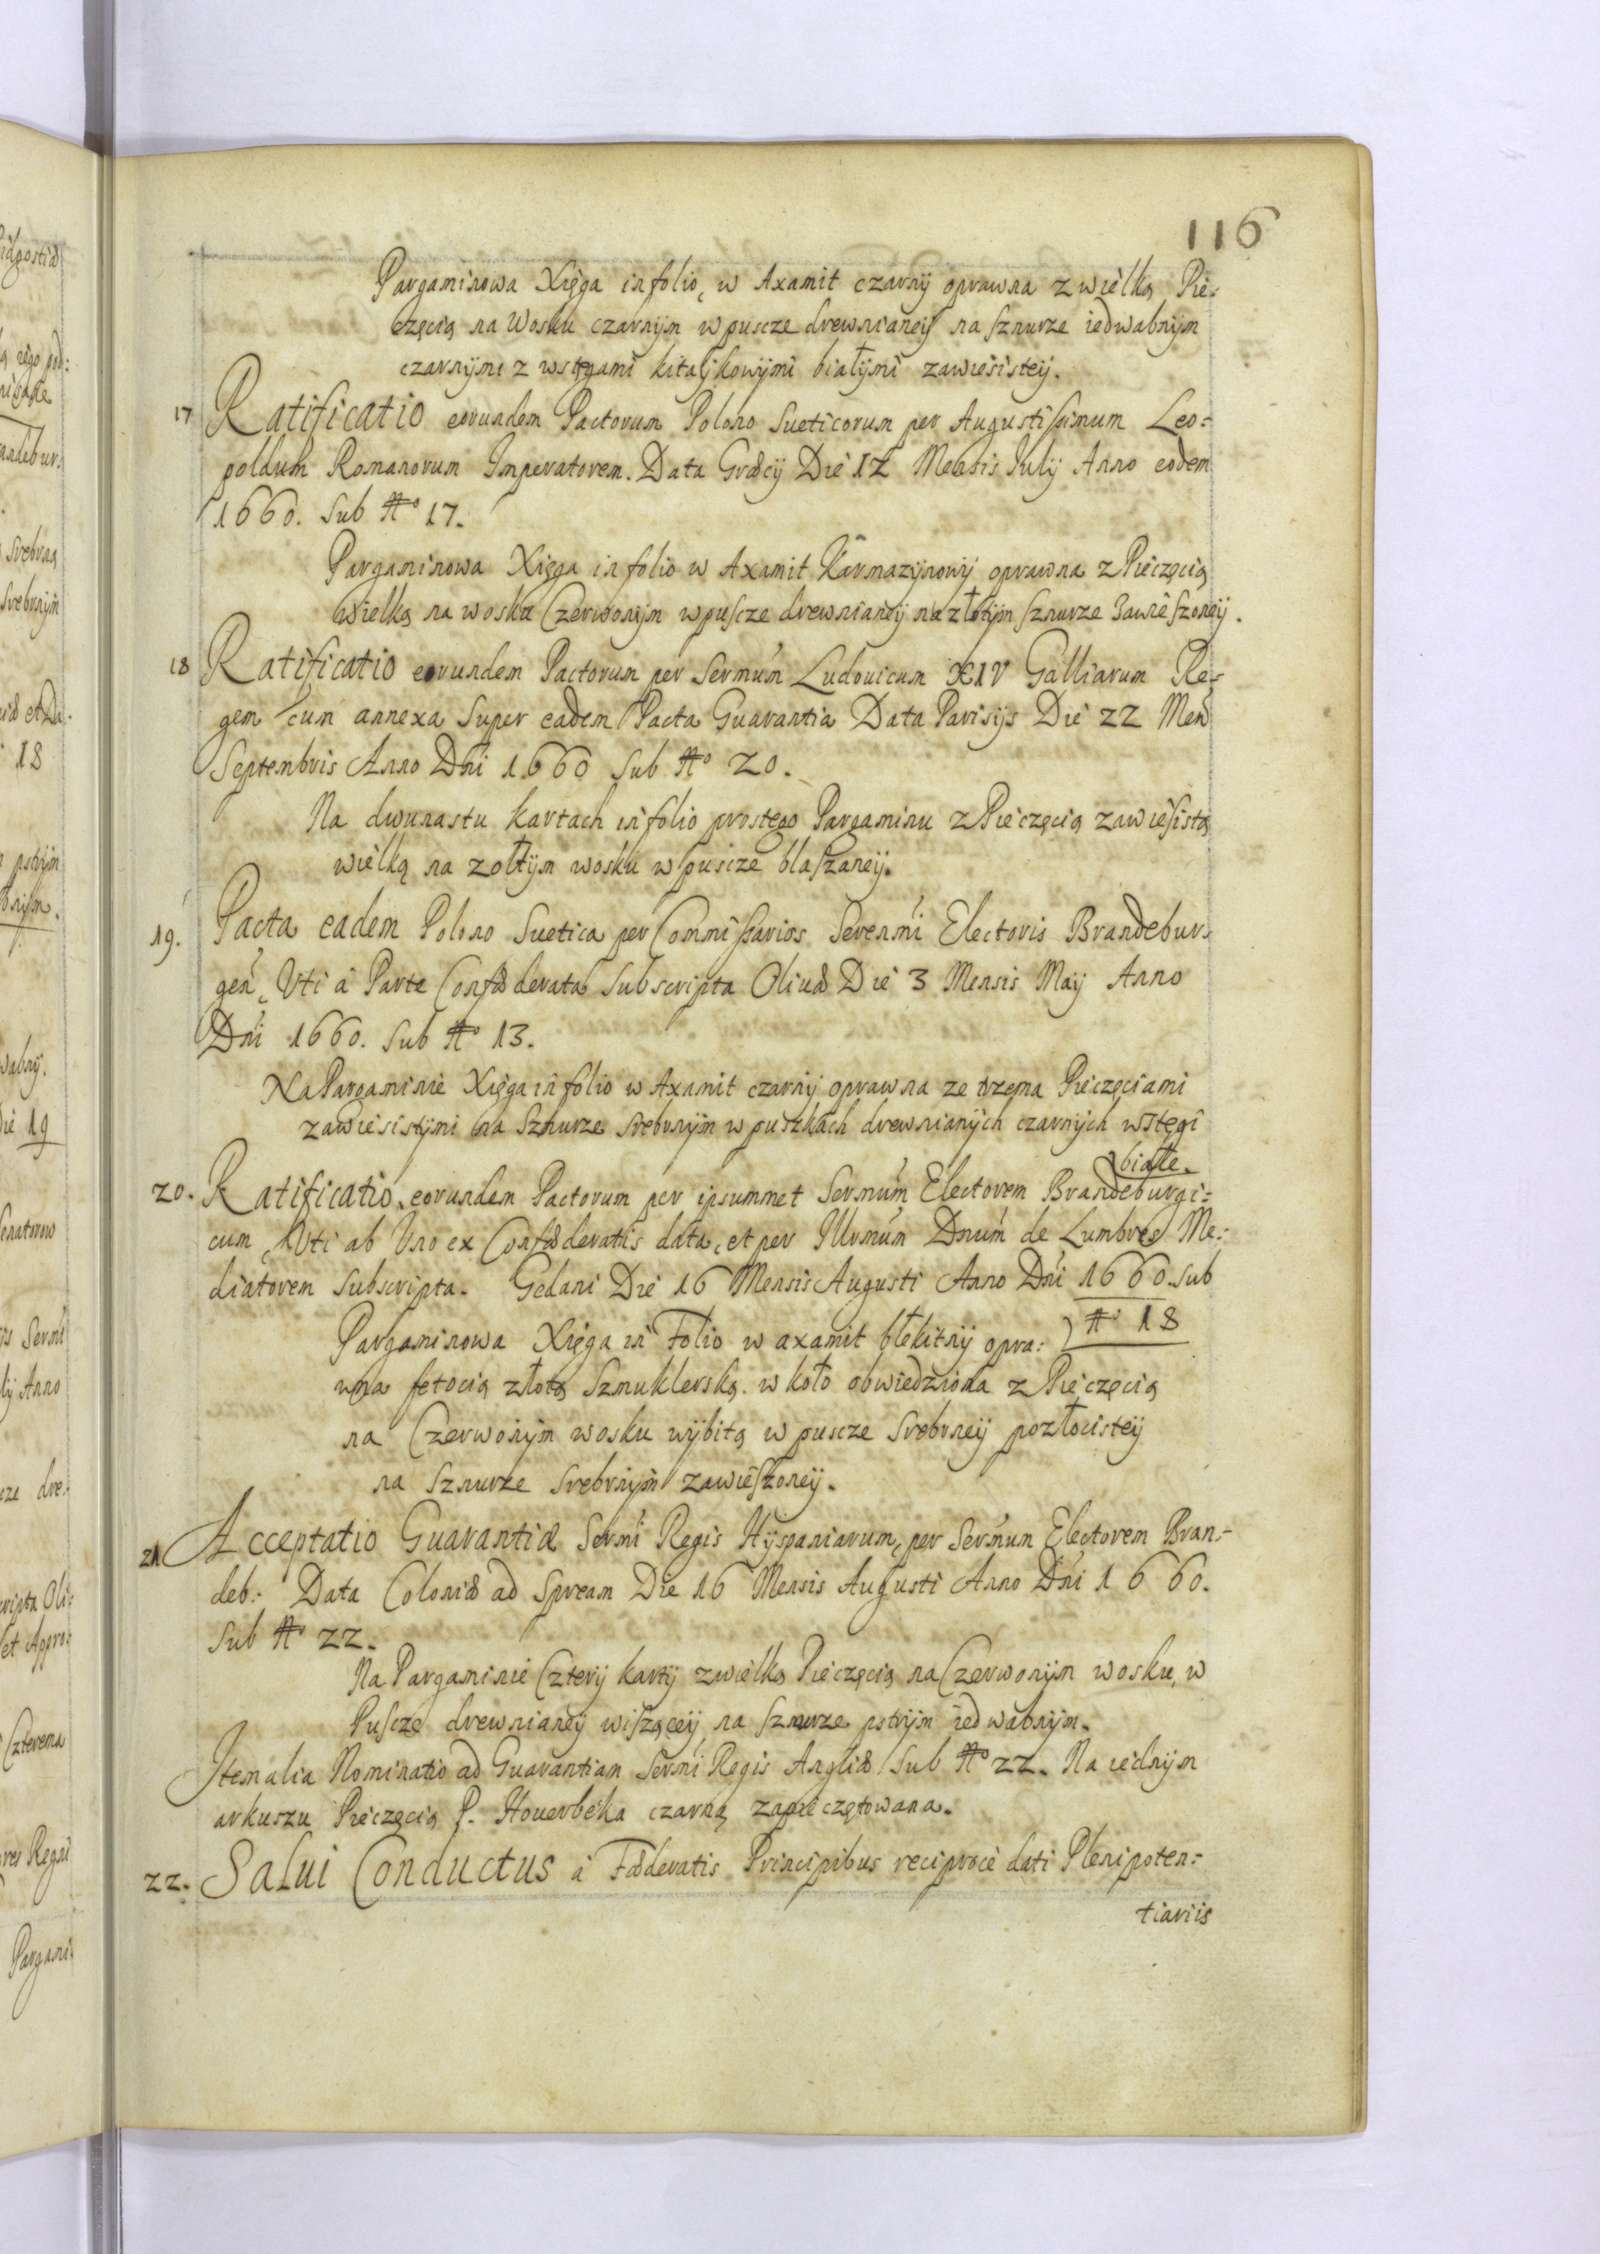 116
Pargaminowa Xięga in folio, w Axamit czarny oprawna z wielką Pie-
częcią na Wosku czarnym w puscze drewnianey na sznurze iedwabnym
czarnymi z wstęgami kitaykowymi białymi zawiesistey.
17 Ratificatio eorundem Pactorum Polono Sueticorum per Augustissimum Leo-
poldum Romanorum Imperatorem. Data Græcij Die 12 Mensis Julij Anno eodem
1660. Sub No 17.
Pargaminowa Xięga in folio w Axamit Karmazynowy oprawna z Pieczęcią
wielką na wosku Czerwonym w puscze drewnianey na złotym sznurze zawieszoney.
18 Ratificatio eorundem Pactorum per Sermum Ludouicum XIV Galliarum Re-
gem cum annexa Super eadem Pacta Guarantia Data Parisijs Die 22 Men
Septembris Anno Dni 1660 Sub No 20.
Na dwunastu kartach in folio prostego Pargaminu z Pieczęcią zawiesistą
wielką na zołtym wosku w puscze blaszaney.
19. Pacta eadem Polono Suetica per Commissarios Serenmi Electoris Brandebur-
gen, Uti â Parte Confæderata Subscripta Oliuæ Die 3 Mensis May Anno
Dni 1660. Sub No 13.
Na Pargaminie Xięga in folio w Axamit czarny oprawna ze trzema Pieczęciami
zawiesistymi na Sznurze srebrnym w puszkach drewnianych czarnych wstęgi
białe.
20. Ratificatio eorundem Pactorum per ipsummet Sermum Electorem Brandeburgi-
cum, Uti ab Uno ex Confæderatis data, et per Illrmum Dnum de Lumbres Me-
diatorem Subscripta. Gedani Die 16 Mensis Augusti Anno Dni 1660. Sub
No 18
Pargaminowa Xięga in Folio w axamit błekitny opra-
wna fetocią złotą Szmuklerską w koło obwiedziona z Pieczęcią
na Czerwonym wosku wybitą w puscze Srebrney pozłocistey
na sznurze srebrnym zawieszoney.
21 Acceptatio Guarantiæ Sermi Regis Hyspaniarum, per Sermum Electorem Bran-
deb: Data Coloniæ ad Spream Die 16 Mensis Augusti Anno Dni 1660.
Sub No 22.
Na Pargaminie Cztery karty z wielką Pieczęcią na Czerwonym wosku, w
Puscze drewnianey wiszącey na sznurze pstrym iedwabnym.
Item alia Nominatio ad Guarantiam Sermi Regis Angliæ Sub No 22. Na iednym
arkuszu Pieczęcią P. Houerbeka czarną zapieczętowana.
22. Salui Conductus â Fæderatis Principibus reciprocè dati Plenipoten-
tiariis